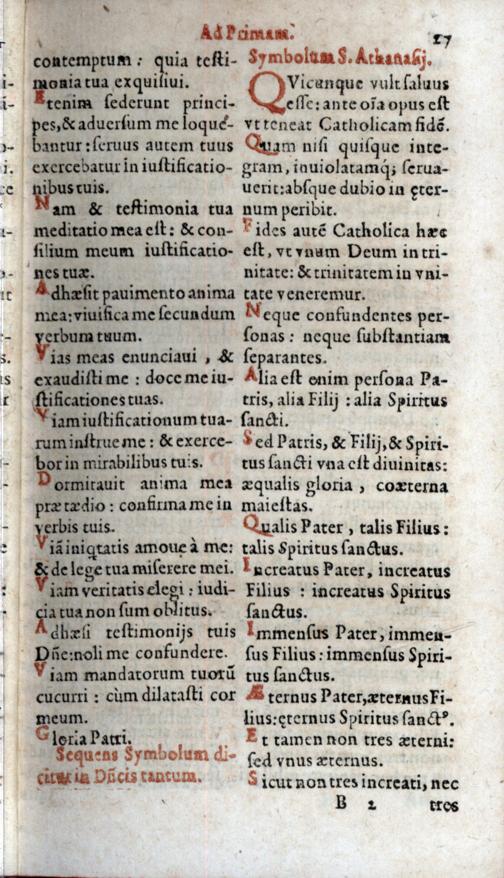 Ad Primam.
27
contemptum : quia testi-
monia tua exquisiui.
Etenim sederunt princi-
pes,& aduersum me loque-
bantur : seruus autem tuus
exercebatur in iustificatio-
nibus tuis.
Nam & testimonia tua
meditatio mea est : & con-
silium meum iustificatio-
nes tuæ.
Adhæsit pauimento anima
mea: viuifica me secundum
verbum tuum.
Vias meas enunciaui , &
exaudisti me : doce me iu-
stificationes tuas.
Viam iustificationum tua-
rum instrue me : & exerce-
bor in mirabilibus tuis.
Dormitauit anima mea
præ tædio : confirma me in
verbis tuis.
Viā iniqtatis amoue à me:
& de lege tua miserere mei.
Viam veritatis elegi : iudi-
cia tua non sum oblitus.
Adhæsi testimonijs tuis
Dñe: noli me confundere.
Viam mandatorum tuorū
cucurri : cùm dilatasti cor
meum.
Gloria Patri.
Sequens Symbolum di-
citur in Dñcis tantum.
Symbolum S. Athanasij.
QVicunque vult saluus
esse: ante oīa opus est
vt teneat Catholicam fidē.
Quam nisi quisque inte-
gram, inuiolatamq; serua-
uerit: absque dubio in ęter-
num peribit.
Fides autē Catholica hæc
est, vt vnum Deum in tri-
nitate: & trinitatem in vni-
tate veneremur.
Neque confundentes per-
sonas : neque substantiam
separantes.
Alia est enim persona Pa-
tris, alia Filij : alia Spiritus
sancti.
Sed Patris, & Filij, & Spiri-
tus sancti vna est diuinitas:
æqualis gloria , coæterna
maiestas.
Qualis Pater , talis Filius :
talis Spiritus sanctus.
Increatus Pater, increatus
Filius : increatus Spiritus
sanctus.
Immensus Pater, immen-
sus Filius : immensus Spiri-
tus sanctus.
Æternus Pater, æternus Fi-
lius: ęternus Spiritus sanct⁹.
Et tamen non tres æterni:
sed vnus æternus.
Sicut non tres increati, nec
B 2 tres